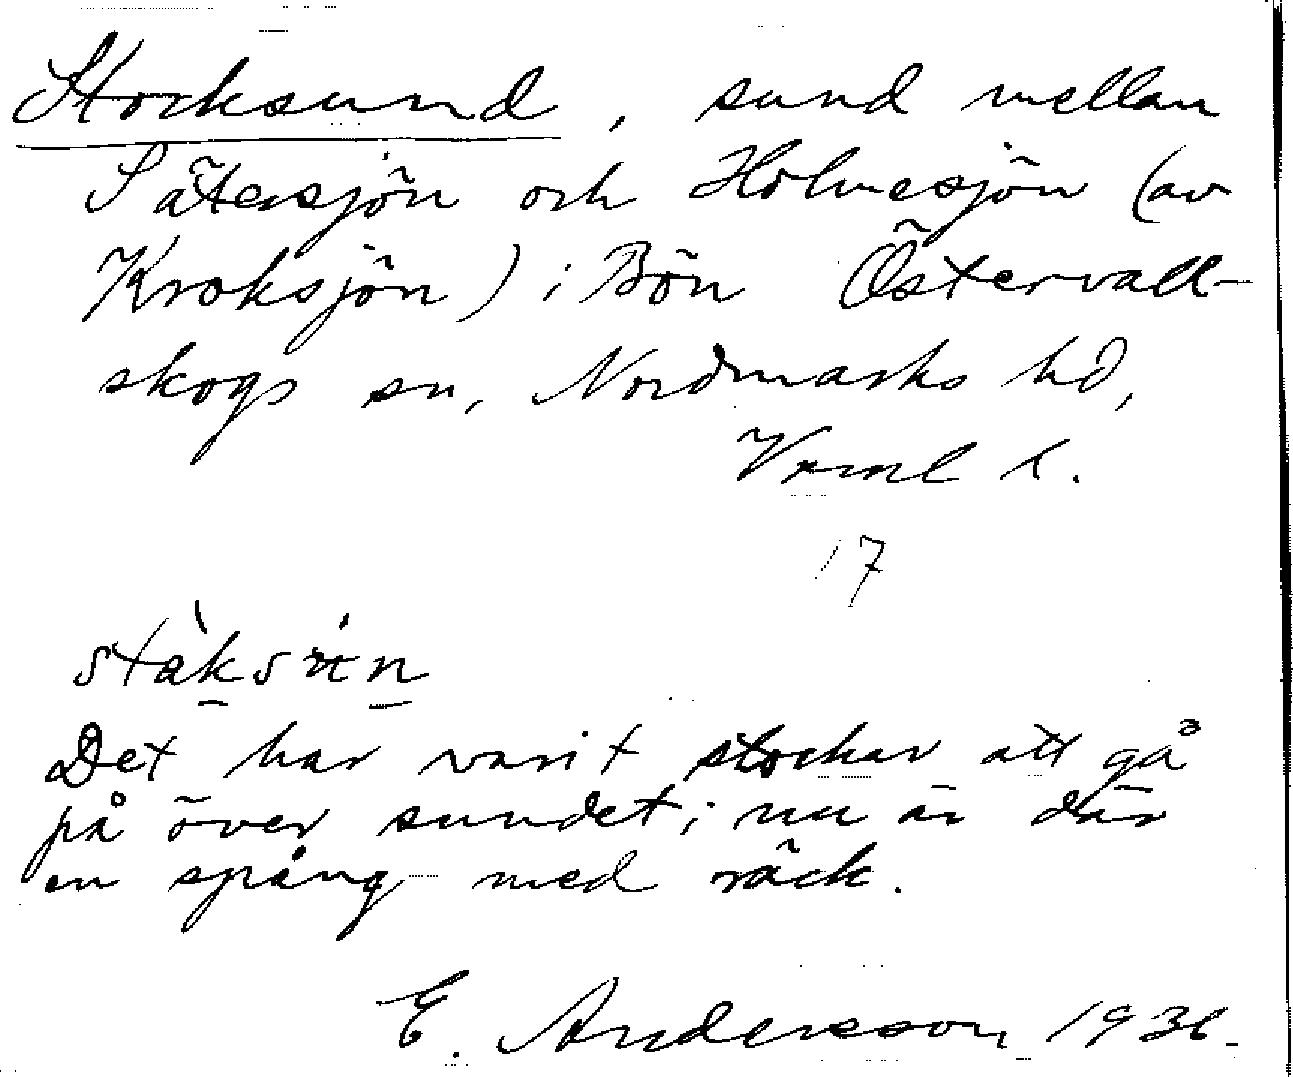 Stocksund, sund mellan
Sätersjön och Holmesjön (av
Kroksjön) i Bön Östervall-
skogs sn, Nordmarks hd,
Vrml l.
17
Det har varit stockar att gå
på över sundet; nu är där
en spång med räck.
E. Andersson 1936.